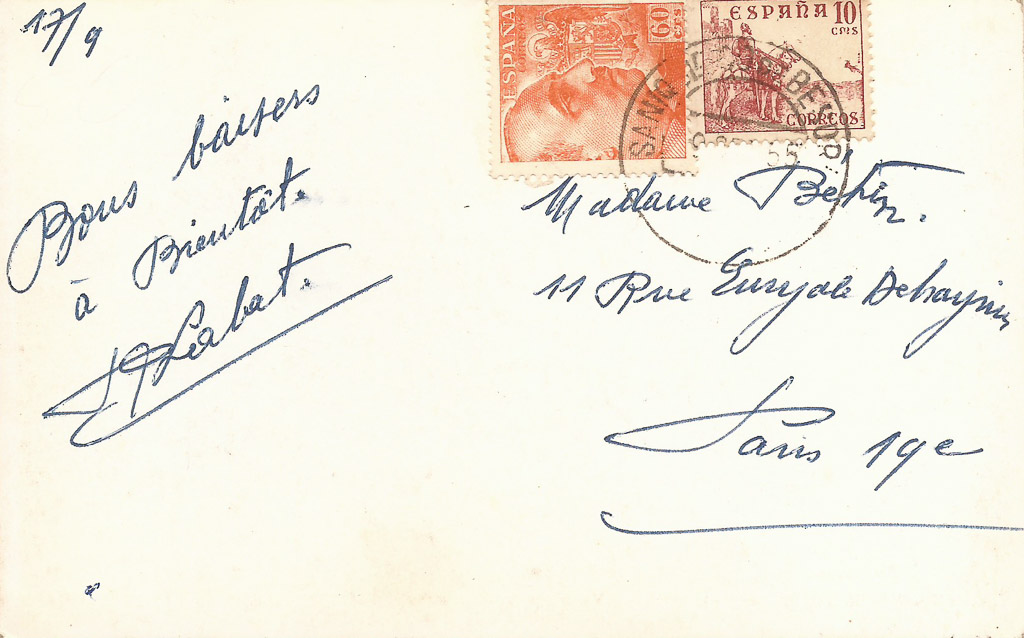 17/9
Bons baisers
à Bientôt.
Labat.
ESPAÑA
60 cts
ESPAÑA 10
cms
CORREOS
55
Madame
11 Rue Euryale Dehaynin
Paris 19e